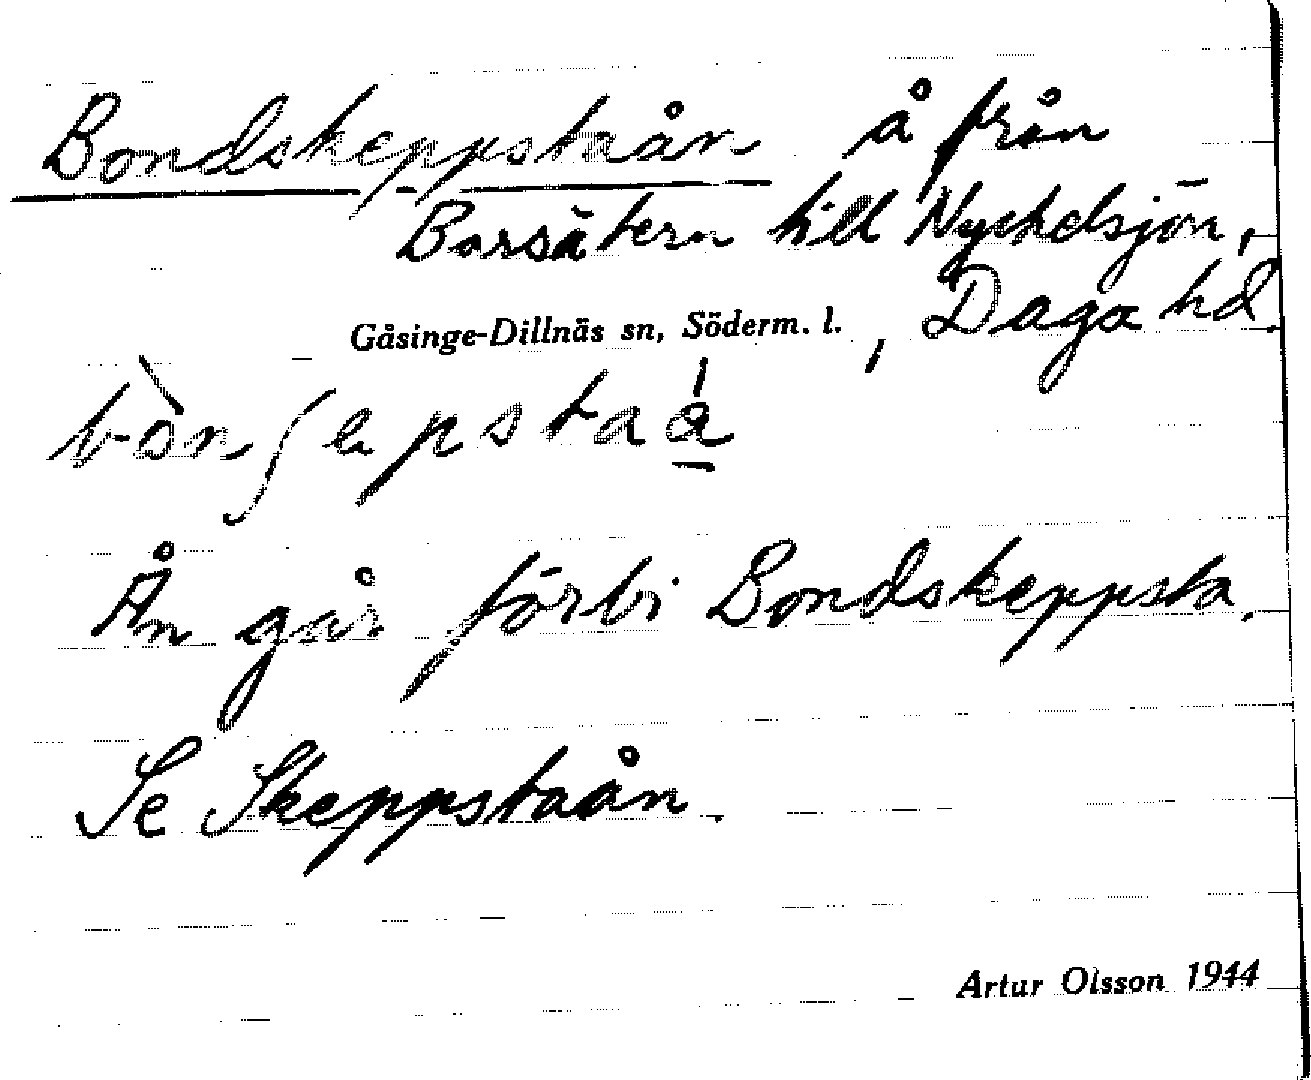 Bondskeppstaån å från
Borsätern till Nyckelsjön,
Gåsinge-Dillnäs sn, Söderm. l., Daga hd.
Ån går förbi Bondskeppsta.
Se Skeppstaån.
Artur Olsson 1944